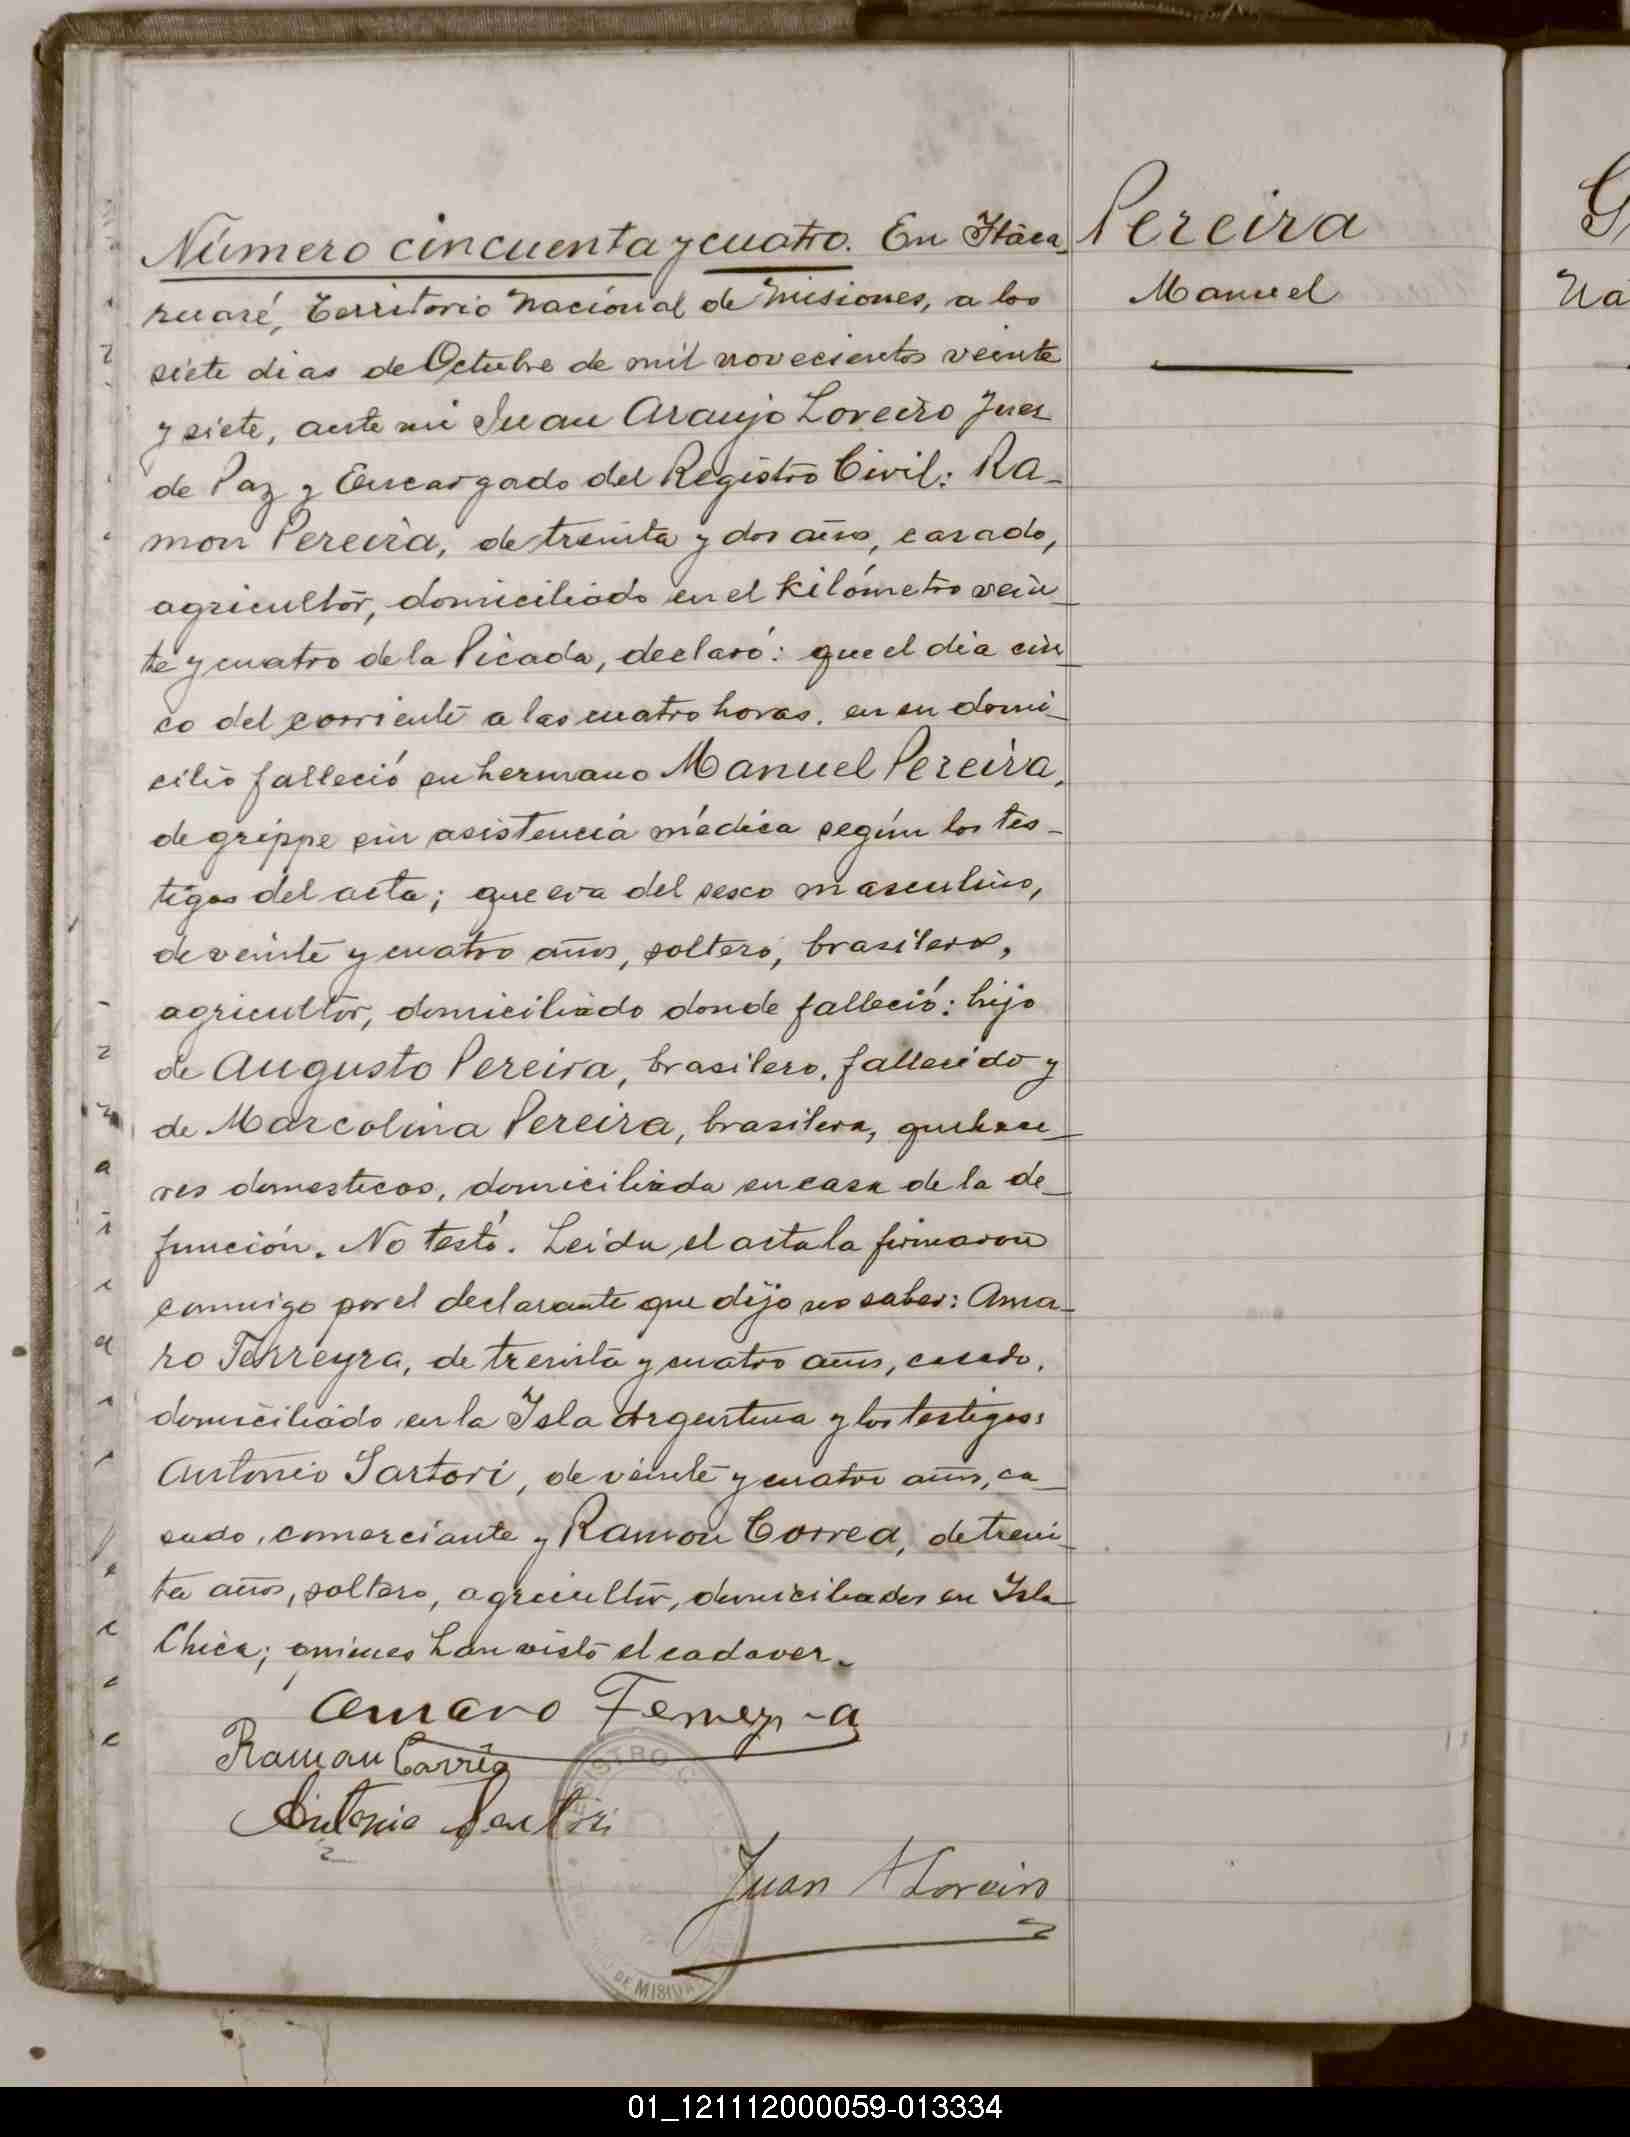 Número cincuenta y cuatro. En Itáca-
ruaré, Territorio Nacional de Misiones, a los
siete dias de Octubre de mil novecientos veinte
y siete, ante mi Juan Araujo Loveiro Juez
de Paz y Encargado del Registro Civil: Ra-
mon Pereira, de treinta y dos años, casado,
agricultor, domiciliado en el kilómetro vein-
te y cuatro de la Picada, declaró: que el dia cin-
co del corriente a las cuatro horas. en su domi-
cilio falleció su hermano Manuel Pereira,
de grippe sin asistencia médica según los tes-
tigos del acta; que era del sexo masculino,
de veinte y cuatro años, soltero, brasilero,
agricultor, domiciliado donde falleció: hijo
de Augusto Pereira, brasilero, fallecido y
de Marcolina Pereira, brasilera, quehace-
res domesticos, domiciliada en casa de la de-
función. No testó. Leida el acta la firmaron
conmigo por el declarante que dijo no saber: Ama-
ro Ferreyra, de treinta y cuatro años, casado,
domiciliado en la Isla Argentina y los testigos:
Antonio Sartori, de veinte y cuatro años, ca-
sado, comerciante y Ramon Correa, de trein-
ta años, soltero, agricultor, domiciliados en Isla
Chica; quienes han visto el cadaver.
Amaro Ferreyra
Ramon Correa
Antonio Sartori
Juan A Loveiro
REGISTRO C
DE MISIONES
Pereira
Manuel
01_121112000059-013334